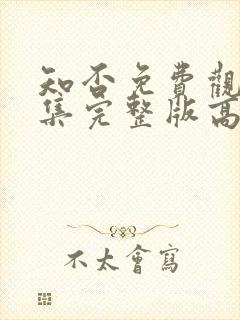 知否免費觀
集完整版高
不太會寫